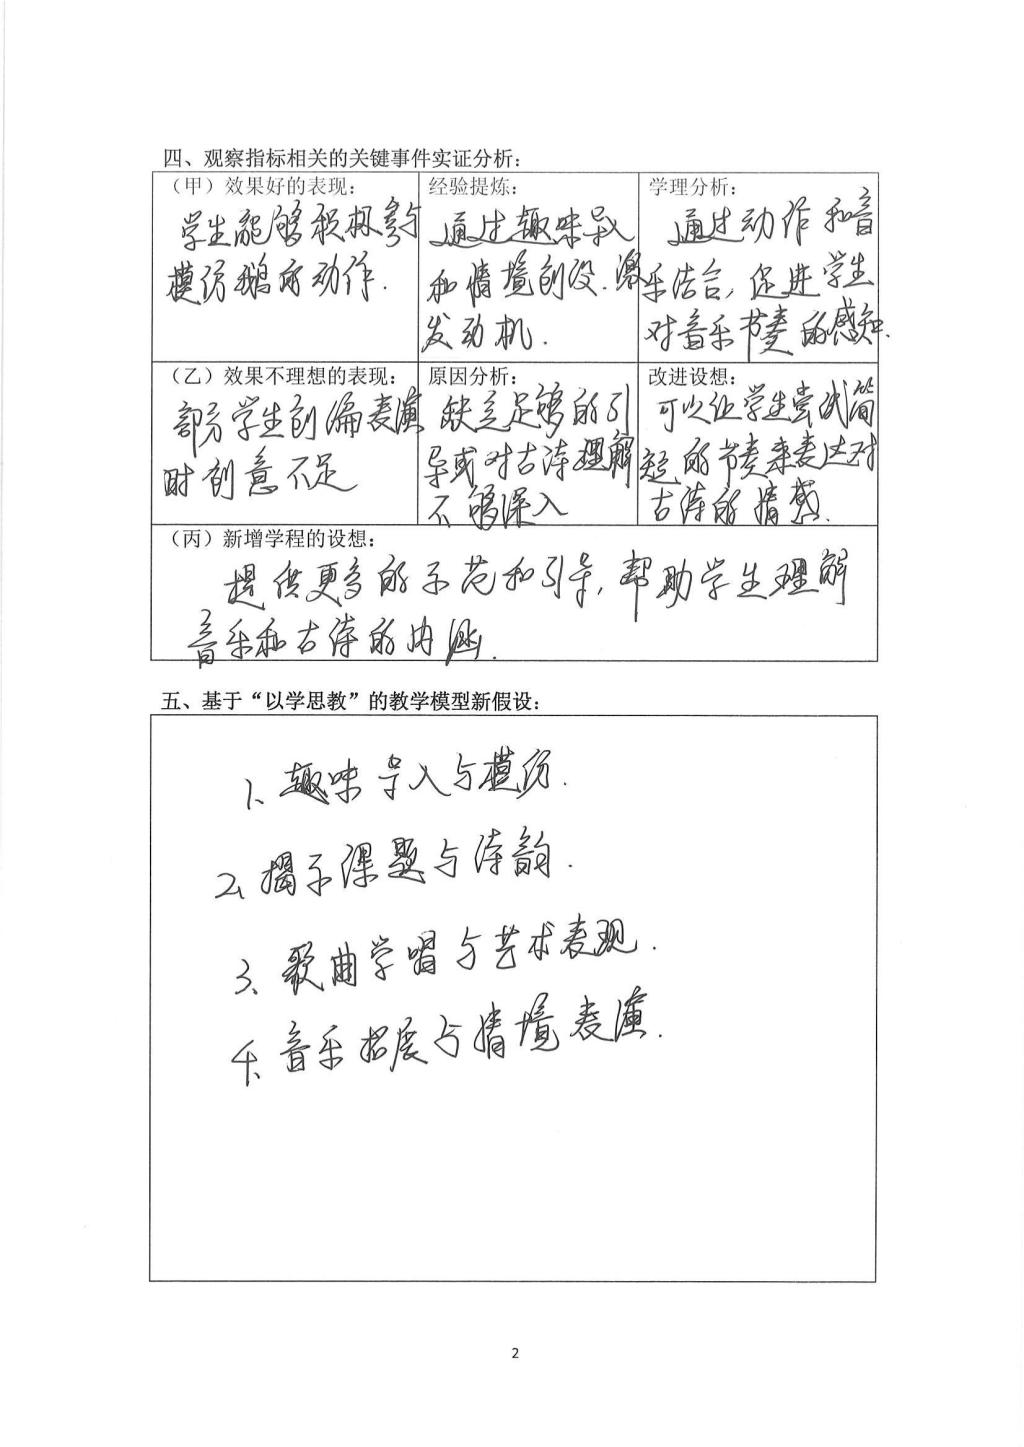 四、观察指标相关的关键事件实证分析：
（甲）效果好的表现：
学生能够积极参与
模仿鹅的动作.
经验提炼：
通过趣味导入
和情境创设.激
发动机.
学理分析：
通过动作和音
乐结合,促进学生
对音乐节奏的感知.
（乙）效果不理想的表现：
部分学生创编表演
时创意不足
原因分析：
缺乏足够的引
导或对古诗理解
不够深入
改进设想：
可以让学生尝试简
短的节奏来表达对
古诗的情感.
（丙）新增学程的设想：
提供更多的示范和引导,帮助学生理解
音乐和古诗的内涵.
五、基于“以学思教”的教学模型新假设：
1、趣味导入与模仿.
2、揭示课题与诗韵.
3、歌曲学唱与艺术表现.
4、音乐拓展与情境表演.
2